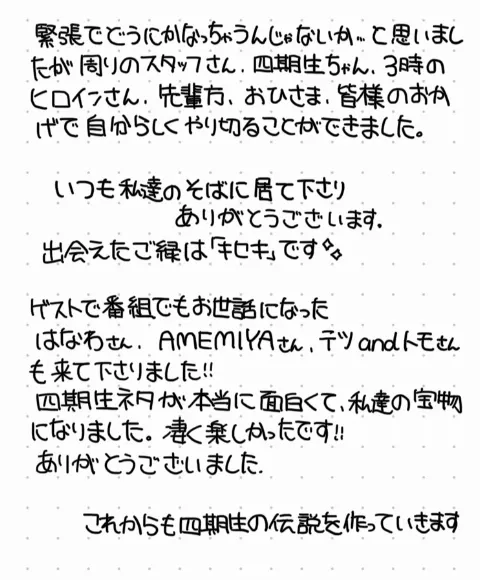 緊張でどうにかなっちゃうんじゃないか…と思いまし
たが周りのスタッフさん、四期生ちゃん、3時の
ヒロインさん、先輩方、おひさま、皆様のおか
げで自分らしくやり切ることができました。
いつも私達のそばに居て下さり
ありがとうございます。
出会えたご縁は「キセキ」です✨
ゲストで番組でもお世話になった
はなわさん、AMEMIYAさん、テツandトモさん
も来て下さりました!!
四期生ネタが本当に面白くて、私達の宝物
になりました。凄く楽しかったです!!
ありがとうございました.
これからも四期生の伝説を作っていきます